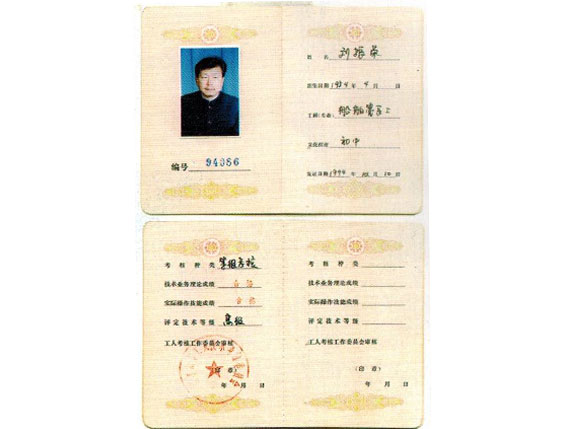 编号 94086
姓名 刘振荣
出生日期 1954 年 4 月 日
工种(专业) 船舶管系工
文化程度 初中
发证日期 1994 年 月 日
考核种类 等级考核
技术业务理论成绩 合格
实际操作技能成绩 合格
评定技术等级 高级
工人考核工作委员会审核
(印章)
年 月 日
考核种类
技术业务理论成绩
实际操作技能成绩
评定技术等级
工人考核工作委员会审核
(印章)
年 月 日